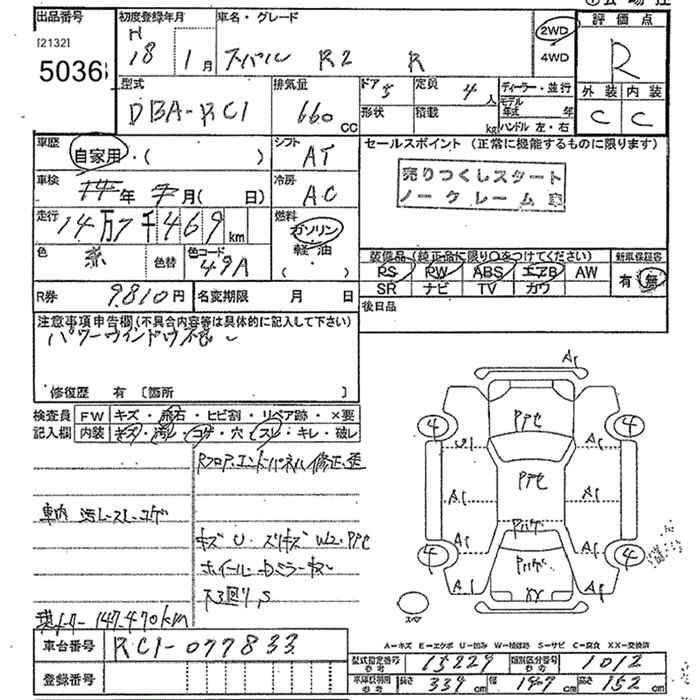 出品番号 初度登録年月 車名・グレード 評価点
[2132]
5036
H
18 1月 スバル R2 R
2WD
4WD
R
型式 排気量 ドア 5 定員 4人 ディーラー・並行
DBA-RC1 660 CC 形状 積載 kg モデル年式 年
ハンドル 左・右
外装 内装
C C
車歴 自家用・( )
シフト AT
セールスポイント(正常に機能するものに限ります)
売りつくしスタート
ノークレーム車
車検 年 月( 日)
冷房 AC
走行 14万7千469km
燃料 ガソリン
軽油
( ・ )
色 赤 色替 色コード 49A
装備品(純正品に限り○をつけてください) 新車保証書
PS PW ABS エアB AW 有 無
SR ナビ TV カワ
R券 9810円 名変期限 月 日
後日品
注意事項申告欄(不具合内容等は具体的に記入して下さい)
パワーウインドウ不良
修復歴 有 〔箇所 〕
検査員 FW キズ・飛石・ヒビ割・リペア跡・×要
記入欄 内装 キズ・汚レ・コゲ・穴・スレ・キレ・破レ
Rフロア、エンドパネル修正、歪
車内 汚レ スレ コゲ
キズ U・スリキズ W2・
ホイール・
下回りS
147,470km
A1
4 4
U1 A1
A1 A1
A1 A1
4 4
A1 A1
XX
スペア
車台番号 RC1-077833
登録番号
A=キズ E=エクボ U=凹み W=補修跡 S=サビ C=腐食 XX=交換済
型式指定番号 参考 15229 類別区分番号 参考 1012
参考 長さ 339cm 幅 147cm 高さ 152cm